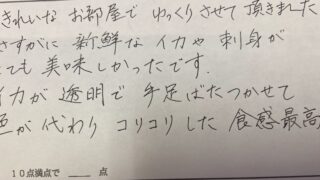 きれいな お部屋で ゆっくりさせて 頂きました
さすがに 新鮮な イカや 刺身が
ても 美味しかったです.
イカが 透明で 手足ばたつかせて
色が 代わり コリコリ した 食感 最高
10点満点で ＿＿ 点